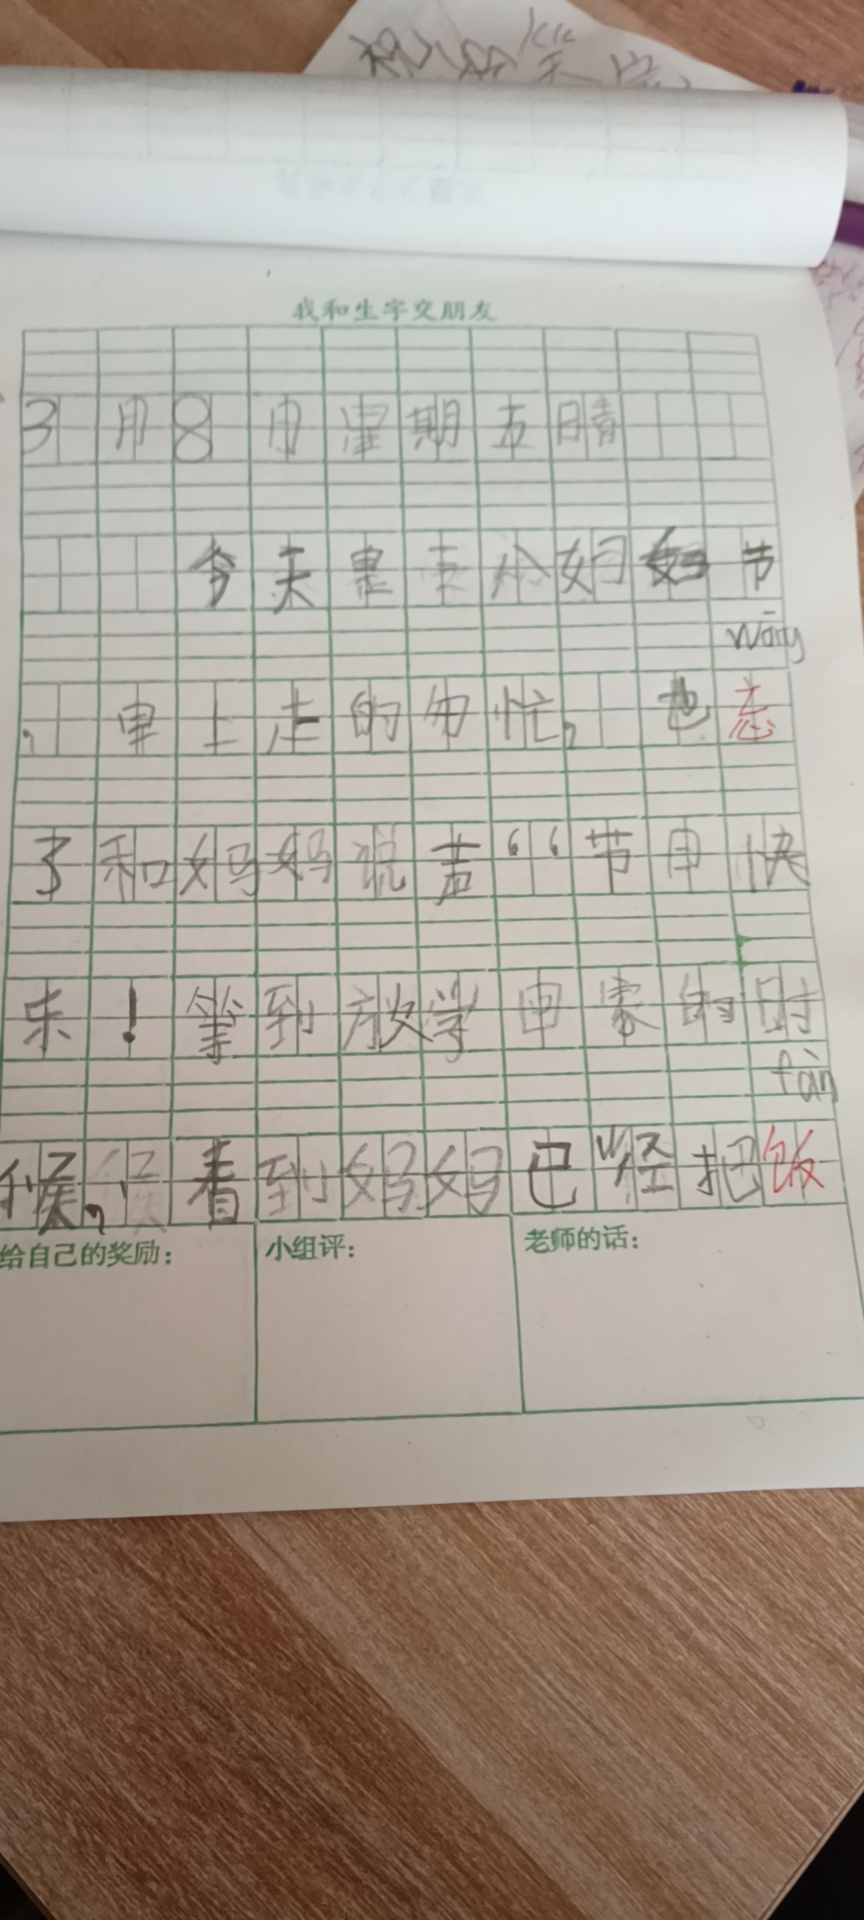 我和生字交朋友
3月8日星期五晴
今天是三八妇女节
wāng
,早上走的匆忙,也忘
了和妈妈说声““节日快
乐!等到放学回家的时
fàn
候,看到妈妈已经把饭
给自己的奖励:
小组评:
老师的话: